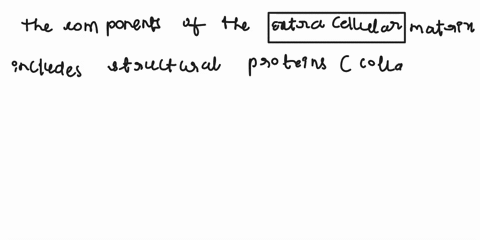 the components of the extracellular matrix
includes structural proteins ( colla